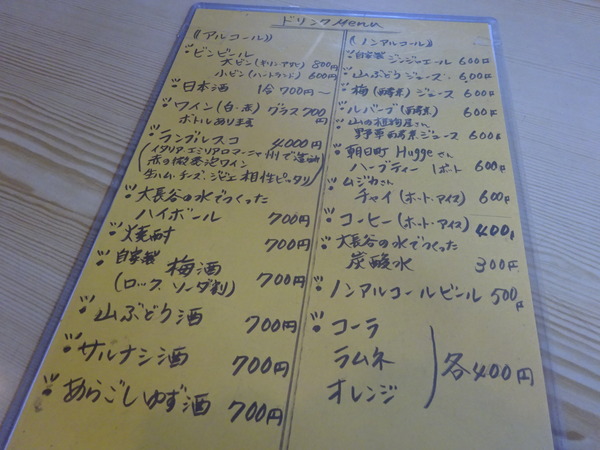 ドリンクMenu
《アルコール》
ビンビール
大ビン(キリン・アサヒ) 800円
小ビン(ハートランド) 600円
日本酒 1合 700円〜
ワイン(白・赤) グラス 700円
ボトルあります
ランブルスコ 4,000円
(イタリア エミリアロマーニャ州で造られ
赤の微発泡ワイン
生ハム・チーズ、ジビエ 相性ピッタリ)
大長谷の水でつくった
ハイボール 700円
焼酎 700円
自家製 梅酒 700円
(ロック、ソーダ割)
山ぶどう酒 700円
サルナシ酒 700円
あらごしゆず酒 700円
《ノンアルコール》
自家製 ジンジャエール 600円
山ぶどうジュース 600円
梅(酵素)ジュース 600円
ルバーブ(酵素) 600円
野草酵素ジュース 600円
朝日町 Huggeさん
ハーブティー 1ポット 600円
ムジカさん
チャイ(ホット・アイス) 600円
コーヒー(ホット・アイス) 400円
大長谷の水でつくった
炭酸水 300円
ノンアルコールビール 500円
コーラ
ラムネ 各400円
オレンジ